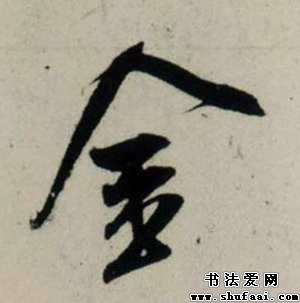 金
书法爱网
www.shufaai.com